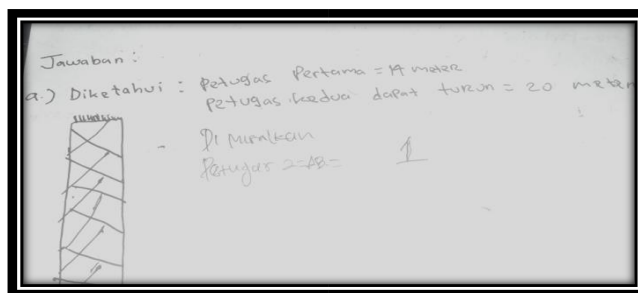 Jawaban :
a.) Diketahui : Petugas Pertama = 14 meter
Petugas kedua dapat turun = 20 meter
- Di misalkan
Petugas 2 = AB = 1